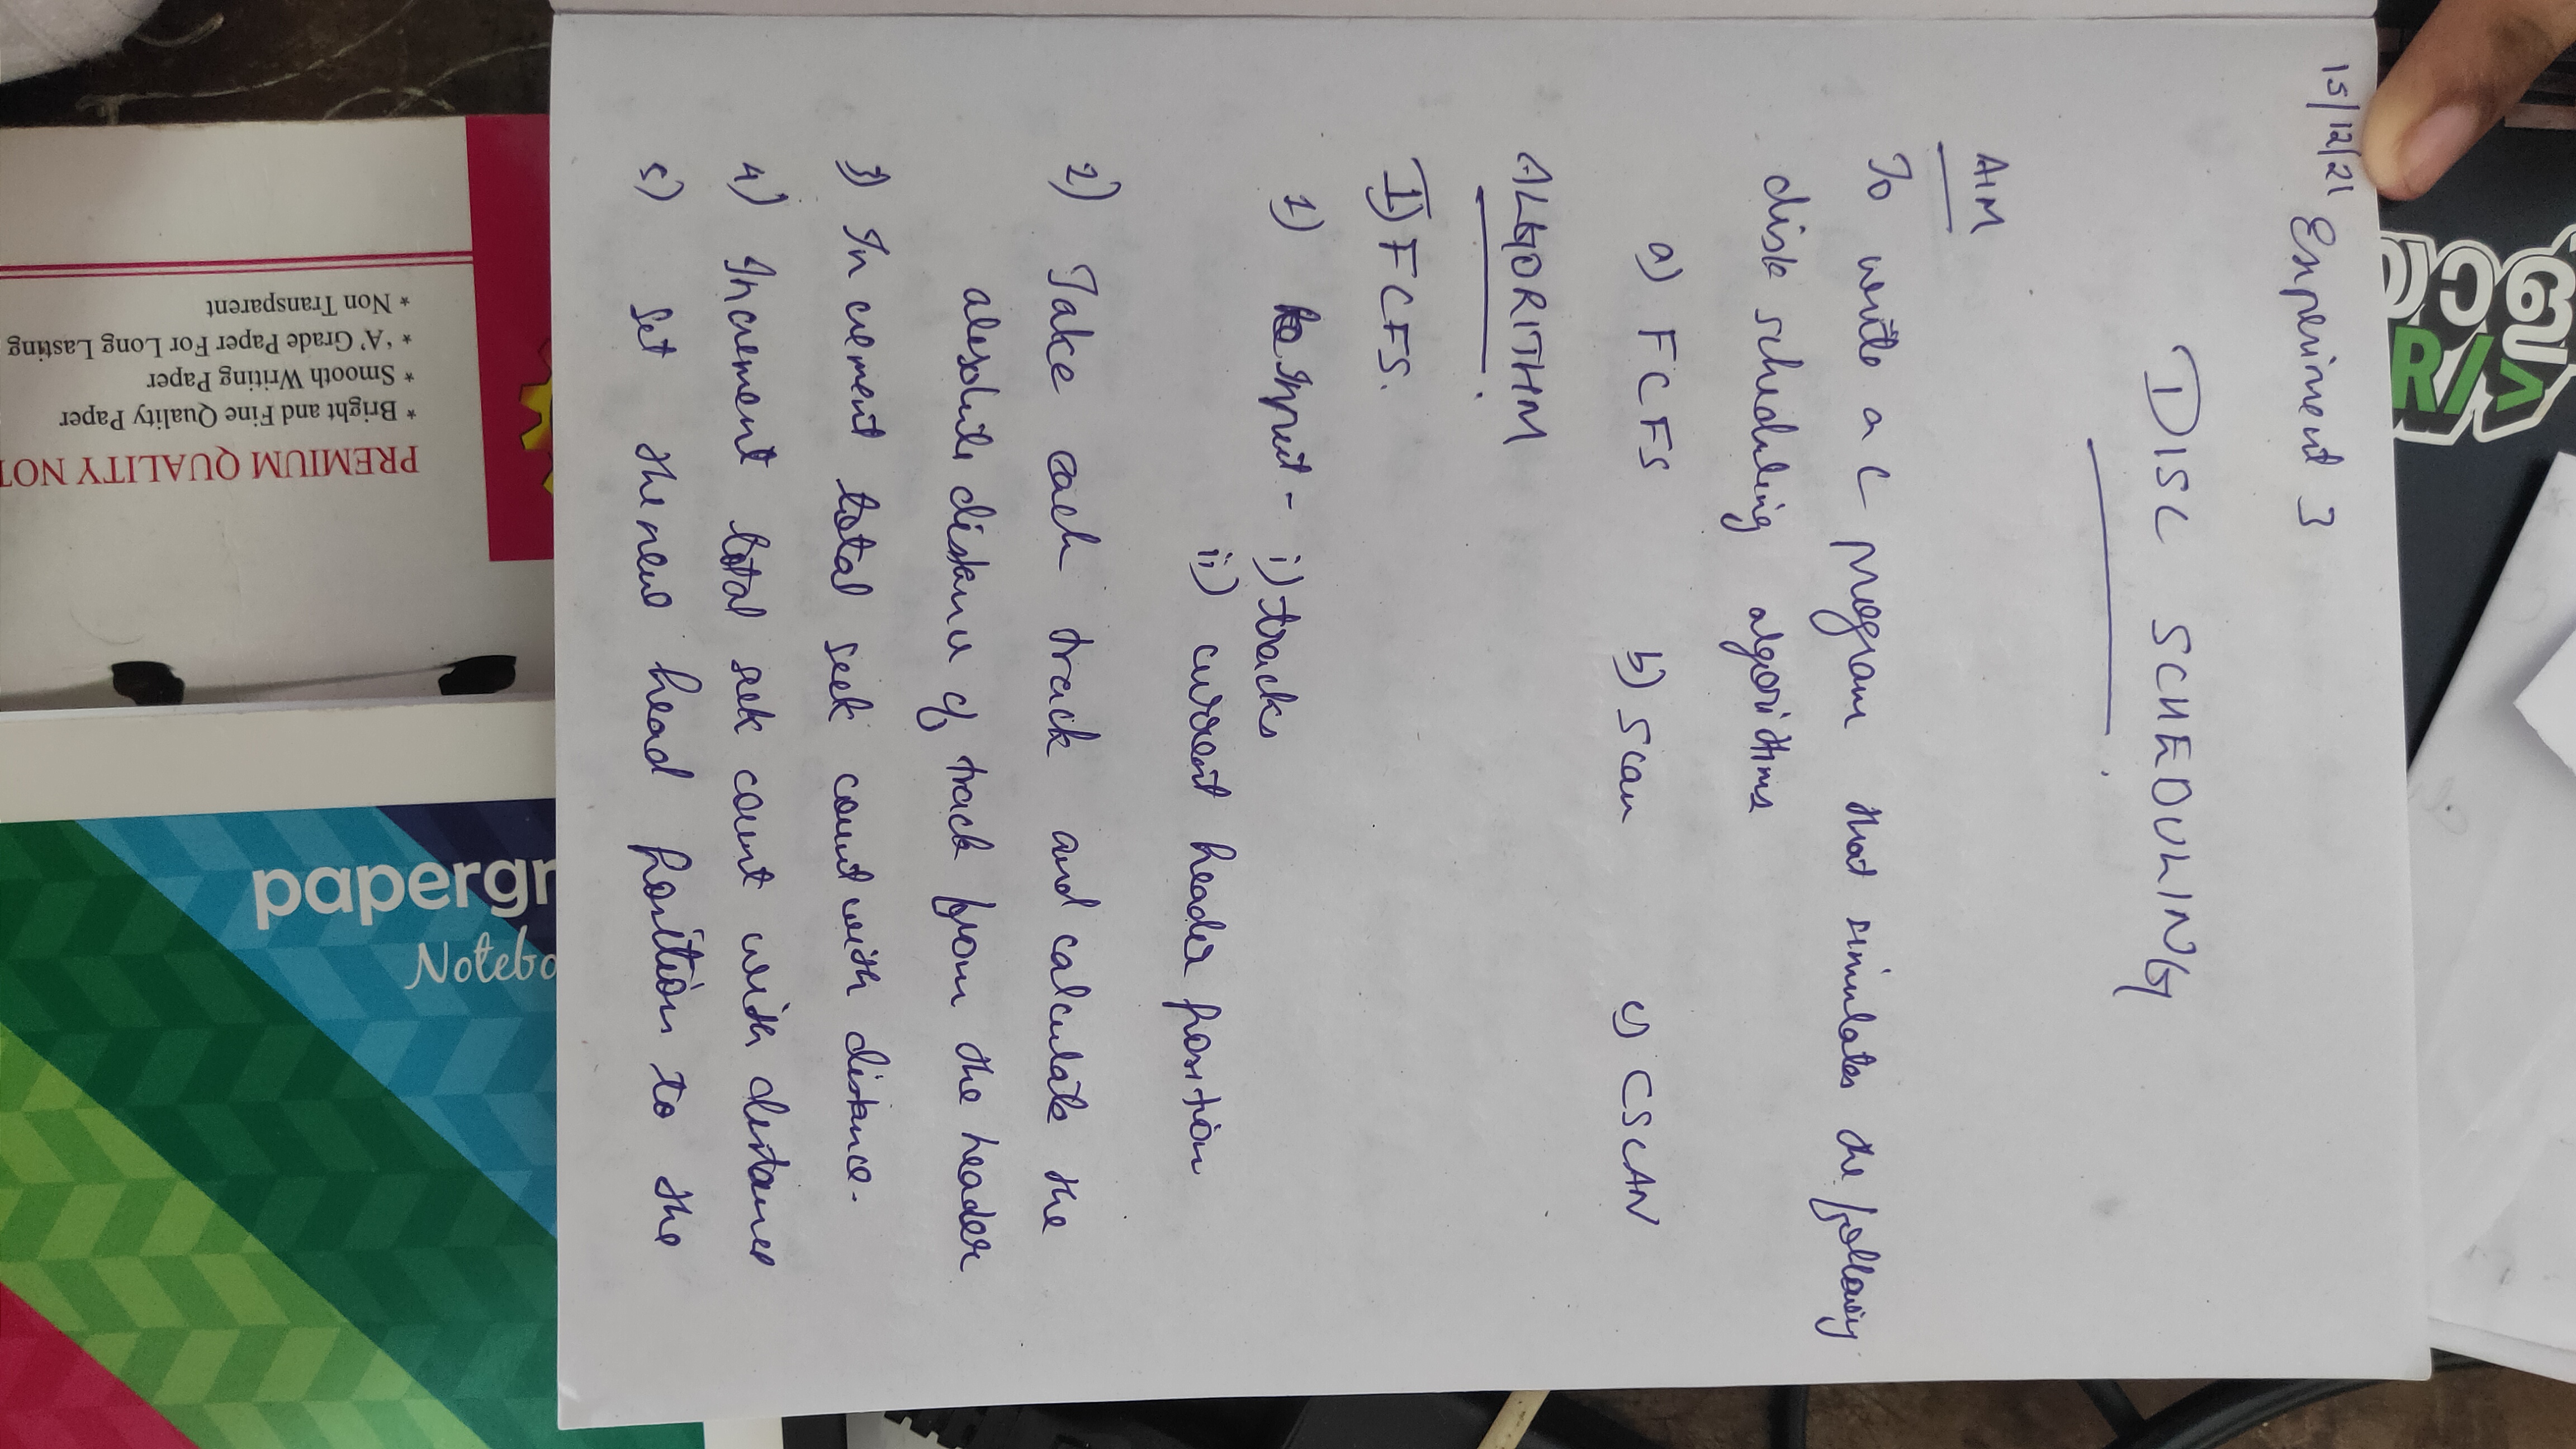 15/12/21
Experiment 3
DISC SCHEDULING
AIM
To write a C program that simulates the following
disk scheduling algorithms
a) FCFS b) Scan c) CSCAN
ALGORITHM
I) FCFS.
1) Input - i) tracks
ii) current header position
2) Take each track and calculate the
absolute distance of track from the header
3) Increment total seek count with distance.
4) Increment total seek count with distance
5) set the new head position to the
PREMIUM QUALITY NOT
* Bright and Fine Quality Paper
* Smooth Writing Paper
* 'A' Grade Paper For Long Lasting
* Non Transparent
papergr
Notebo
R/>